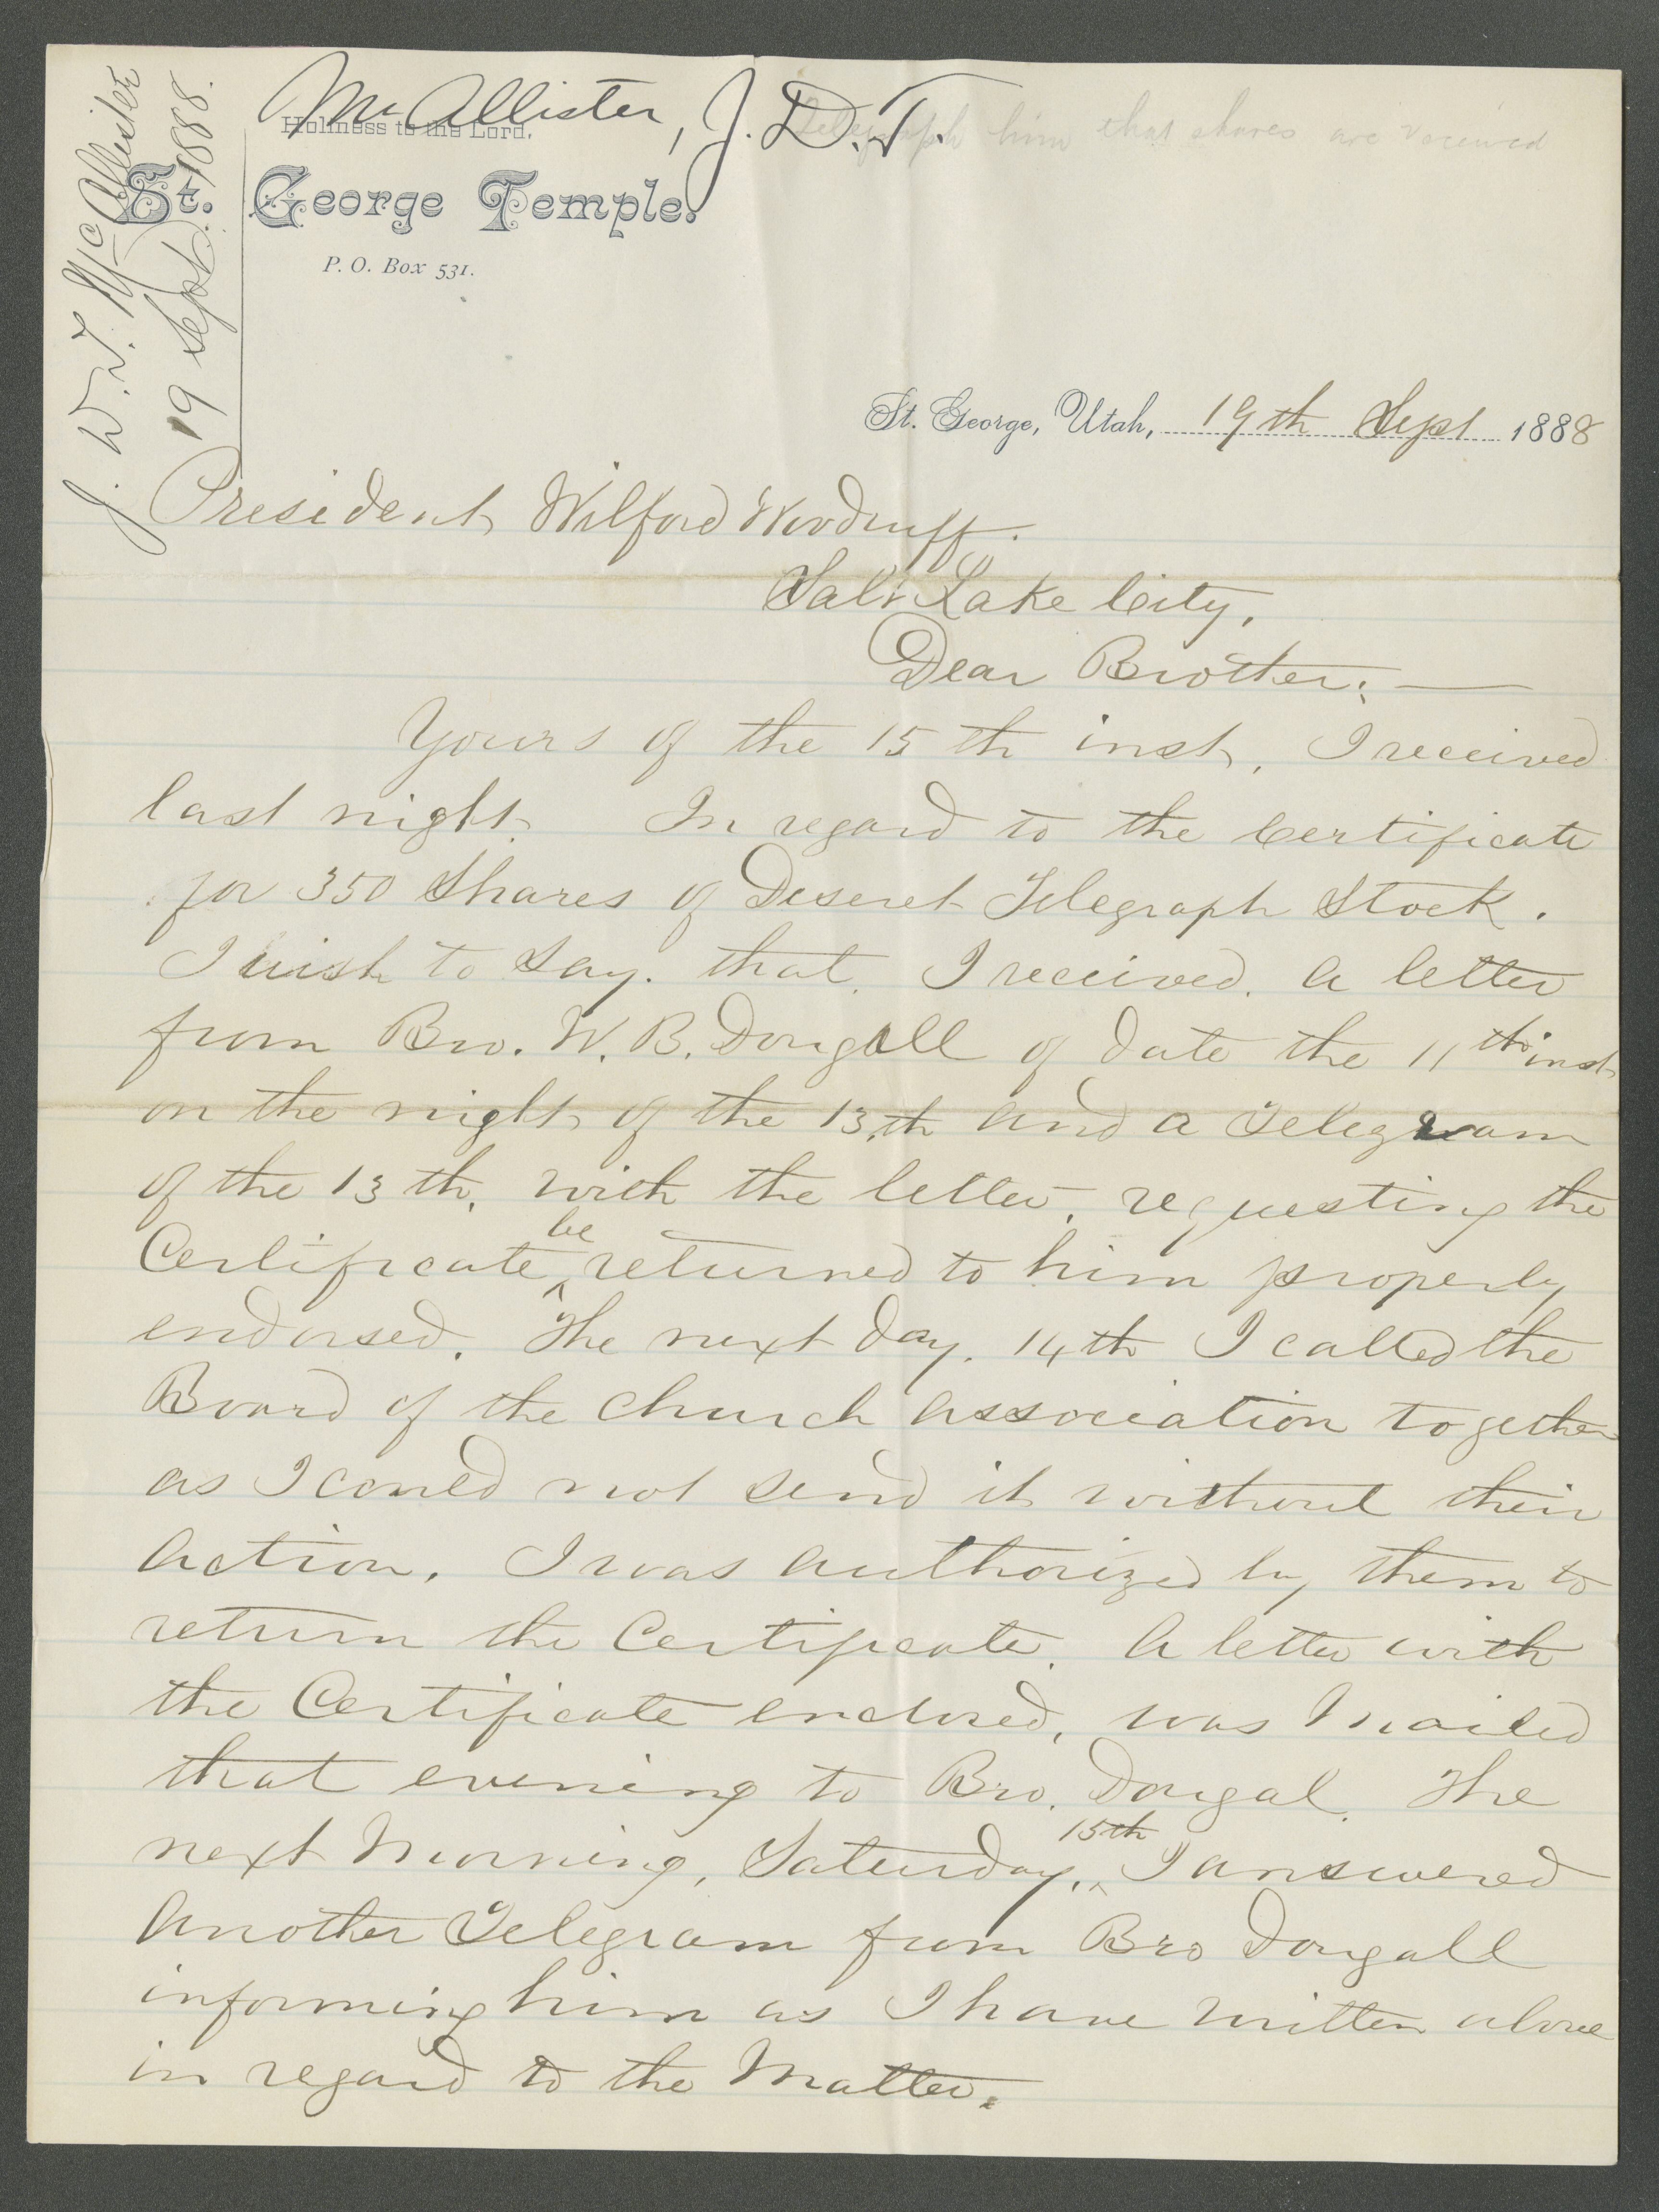 McAllister, J. D. T.
Telegraph him that shares are received
Holiness to the Lord.
St. George Temple.
P. O. Box 531.
J. D. T. McAllister
19 Sept. 1888.
St. George, Utah, 19th Sept 1888
President Wilford Woodruff.
Salt Lake City,
Dear Brother: —
Yours of the 15th inst, I received
last night. In regard to the Certificate
for 350 Shares of Deseret Telegraph Stock.
I wish to say. that. I received. a letter
from Bro. W. B. Dougall of date the 11th inst
on the night of the 13th and a Telegram
of the 13th, with the letter, requesting the
Certificate be returned to him properly
endorsed. The next day. 14th I called the
Board of the Church Association together
as I could not send it without their
action. I was authorized by them to
return the Certificate. A letter with
the Certificate enclosed, was mailed
that evening to Bro. Dougal. The
next Morning, Saturday, 15th I answered
another Telegram from Bro Dougall
informing him as I have written above
in regard to the Matter.